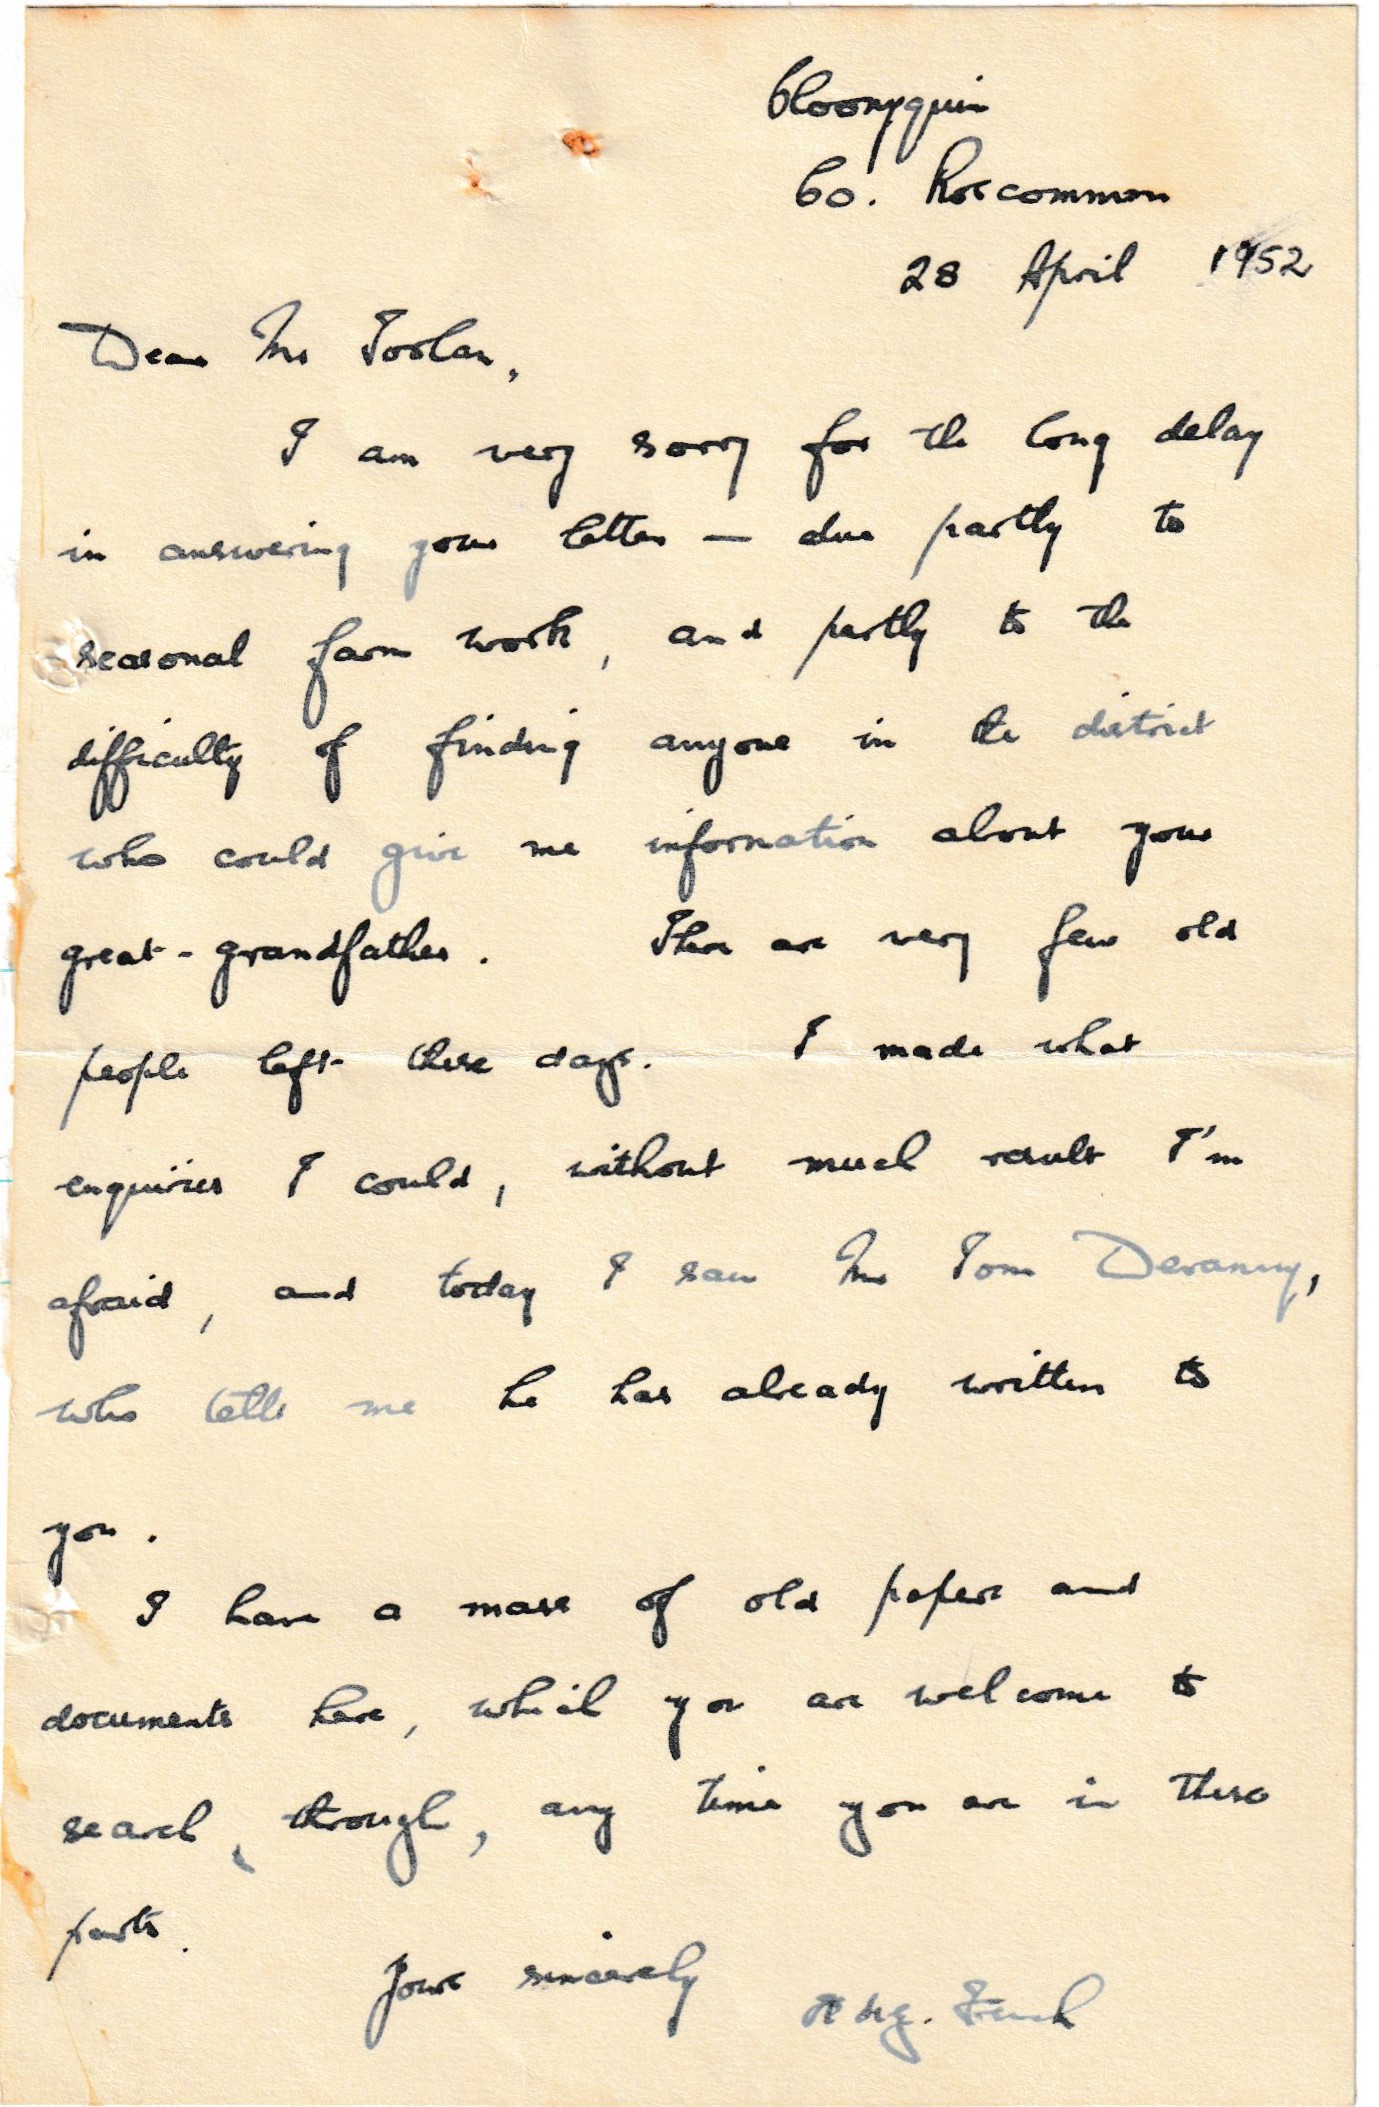 Cloonyquin
Co. Roscommon
28 April 1952
Dear Mr Toolan,
I am very sorry for the long delay
in answering your letter — due partly to
seasonal farm work, and partly to the
difficulty of finding anyone in the district
who could give me information about your
great-grandfather. There are very few old
people left these days. I made what
enquiries I could, without much result I'm
afraid, and today I saw Mr Tom
who tells me he has already written to
you.
I have a mass of old papers and
documents here, which you are welcome to
search through, any time you are in these
parts.
Yours sincerely
French